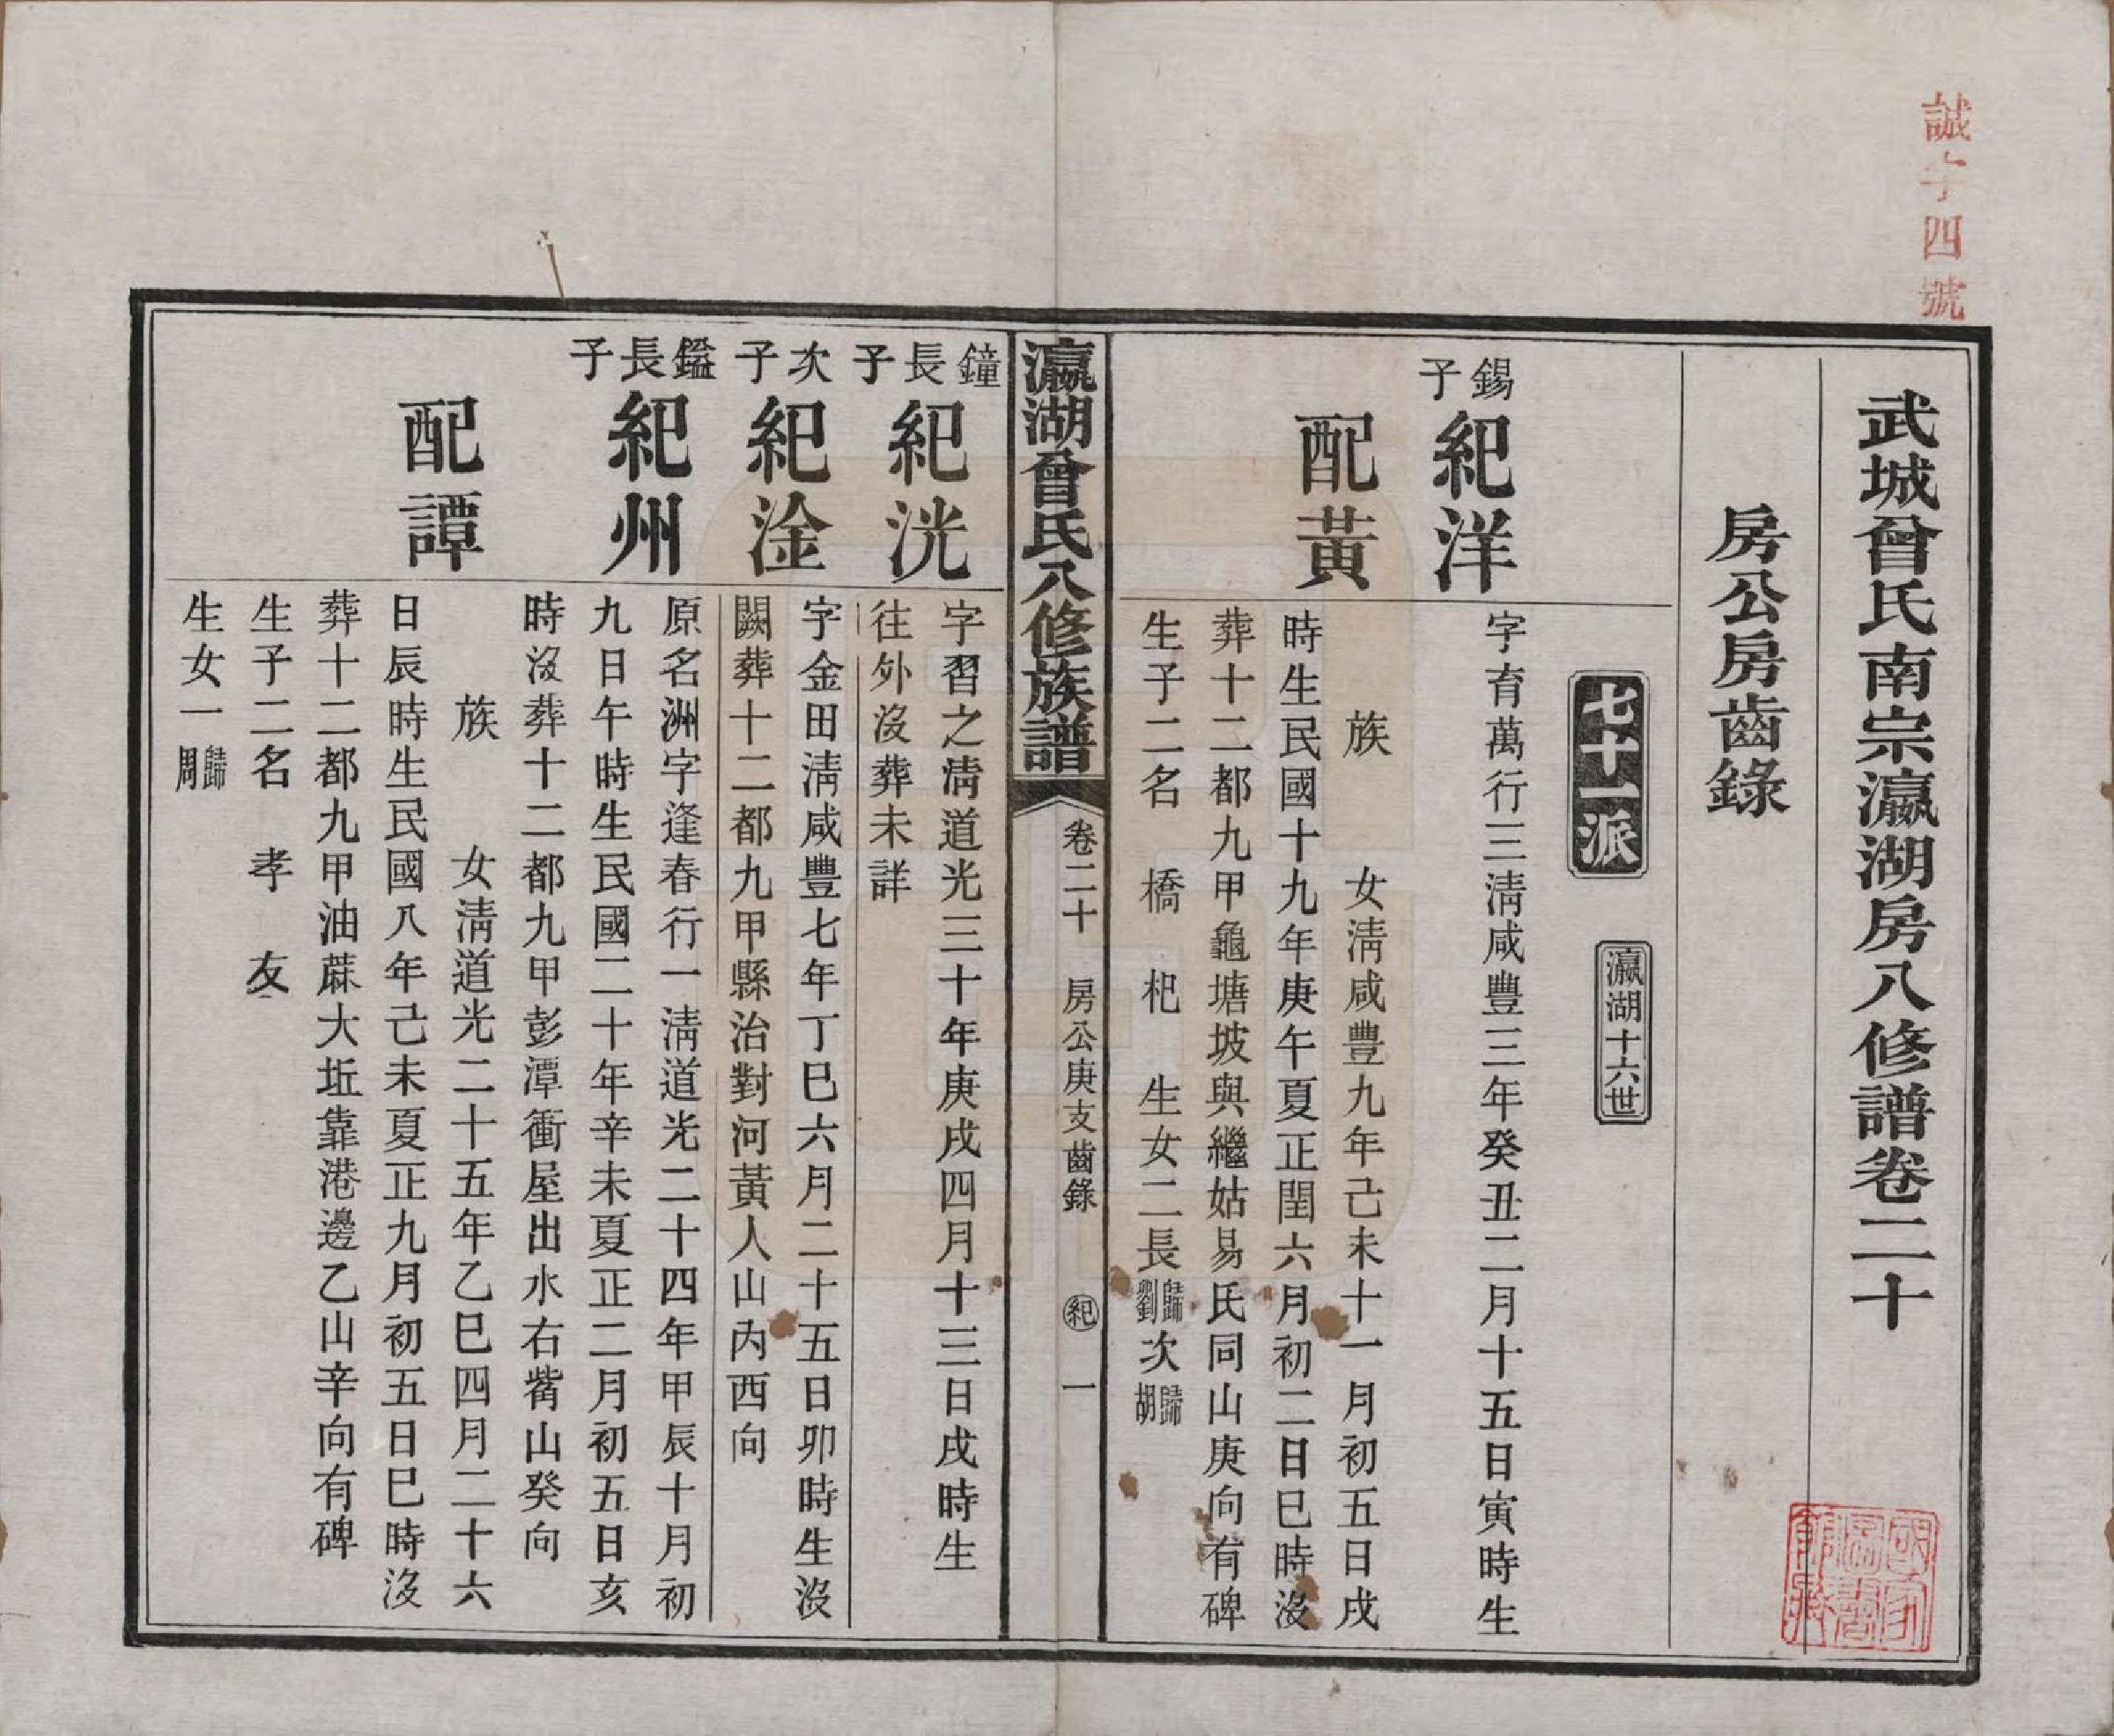 誠字四號
武城曾氏南宗瀛湖房八修譜卷二十
房公房齒錄
七十一派
瀛湖十六世
錫子
紀洋
字育萬行三淸咸豐三年癸丑二月十五日寅時生
配黃
族 女淸咸豐九年己未十一月初五日戌
時生民國十九年庚午夏正閏六月初二日巳時沒
葬十二都九甲龜塘坡與繼姑易氏同山庚向有碑
生子二名 橋 杷 生女二長歸劉次歸胡
瀛湖曾氏八修族譜
卷二十 房公庚支齒錄 紀 一
鐘長子
紀洸
字習之淸道光三十年庚戌四月十三日戌時生
往外沒葬未詳
次子
紀淦
字金田淸咸豐七年丁巳六月二十五日卯時生沒
闕葬十二都九甲縣治對河黃人山內西向
鎰長子
紀州
原名洲字逢春行一淸道光二十四年甲辰十月初
九日午時生民國二十年辛未夏正二月初五日亥
時沒葬十二都九甲彭潭衝屋出水右觜山癸向
配譚
族 女淸道光二十五年乙巳四月二十六
日辰時生民國八年己未夏正九月初五日巳時沒
葬十二都九甲油蔴大坵靠港邊乙山辛向有碑
生子二名 孝 友
生女一歸周
國家圖書館藏